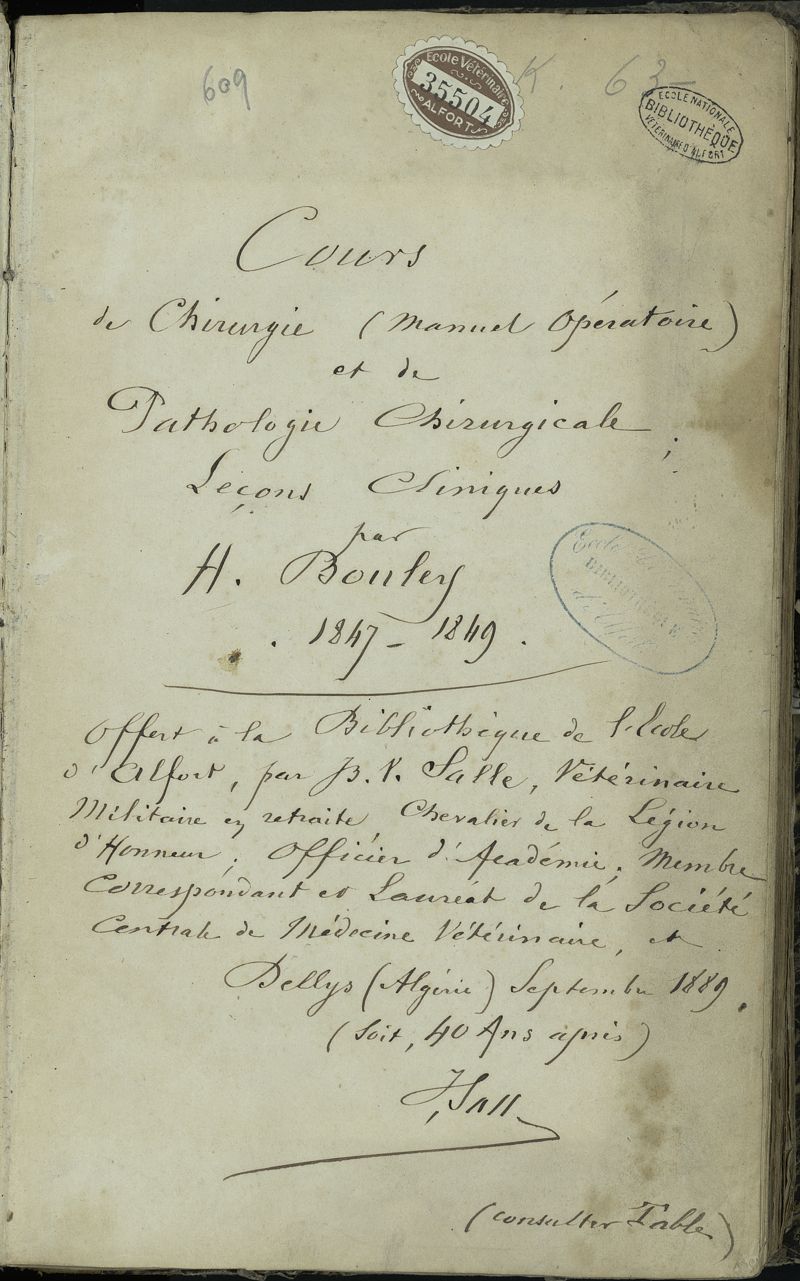 609
Ecole Vétérinaire
35504
ALFORT
K. 63
ECOLE NATIONALE
BIBLIOTHÈQUE
VÉTÉRINAIRE D'ALFORT
Cours
de Chirurgie (Manuel Opératoire)
et de
Pathologie Chirurgicale ;
Leçons Cliniques
par
H. Bouley
1847 - 1849.
Ecole
BIBLIOTHEQUE
d'Alfort
Offert à la Bibliothèque de l'Ecole
d'Alfort, par B. V. Salle, Vétérinaire
Militaire en retraite Chevalier de la Légion
d'Honneur, Officier d'Académie, Membre
Correspondant et Lauréat de la Société
Centrale de Médecine Vétérinaire, et
Dellys (Algérie) Septembre 1889.
(Soit, 40 Ans après)
(consulter Table)